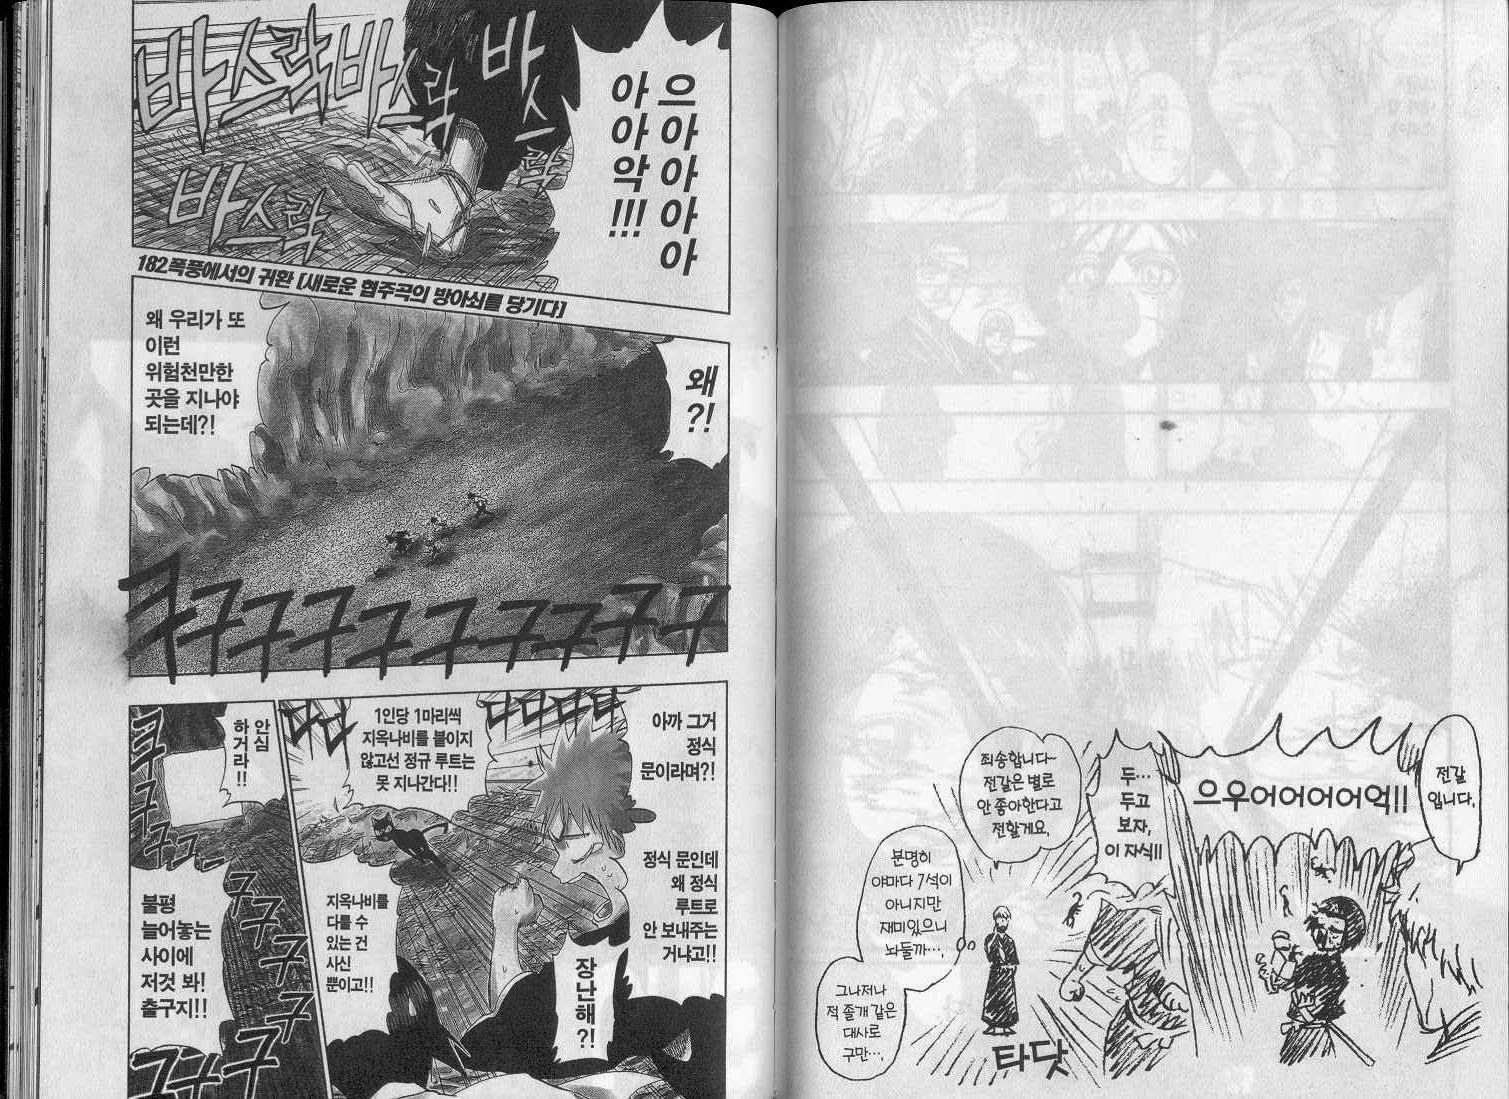 바스락바스락
바스락
바스락
으아아아아
아아악!!!
182.폭풍에서의 귀환 [새로운 협주곡의 방아쇠를 당기다]
왜?!
왜 우리가 또
이런
위험천만한
곳을 지나야
되는데?!
쿠구구구구구구구구구
아까 그거
정식
문이라며?!
정식 문인데
왜 정식
루트로
안 보내주는
거냐고!!
장난해?!
1인당 1마리씩
지옥나비를 붙이지
않고선 정규 루트는
못 지나간다!!
지옥나비를
다룰 수
있는 건
사신
뿐이고!!
안심
하거라!!
불평
늘어놓는
사이에
저것 봐!
출구지!!
쿠구구
구구구구
쿠구구구
전갈
입니다.
으우어어어어억!!
두…
두고
보자,
이 자식!!
죄송합니다~
전갈은 별로
안 좋아한다고
전할게요.
분명히
야마다 7석이
아니지만
재미있으니
놔둘까….
그나저나
적 졸개 같은
대사로
구만….
타닷